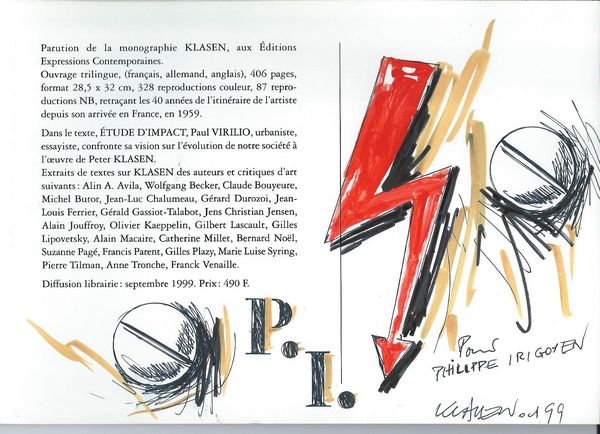 Parution de la monographie KLASEN, aux Éditions
Expressions Contemporaines.
Ouvrage trilingue, (français, allemand, anglais), 406 pages,
format 28,5 x 32 cm, 328 reproductions couleur, 87 repro-
ductions NB, retraçant les 40 années de l'itinéraire de l'artiste
depuis son arrivée en France, en 1959.
Dans le texte, ÉTUDE D'IMPACT, Paul VIRILIO, urbaniste,
essayiste, confronte sa vision sur l'évolution de notre société à
l'œuvre de Peter KLASEN.
Extraits de textes sur KLASEN des auteurs et critiques d'art
suivants : Alin A. Avila, Wolfgang Becker, Claude Bouyeure,
Michel Butor, Jean-Luc Chalumeau, Gérard Durozoi, Jean-
Louis Ferrier, Gérald Gassiot-Talabot, Jens Christian Jensen,
Alain Jouffroy, Olivier Kaeppelin, Gilbert Lascault, Gilles
Lipovetsky, Alain Macaire, Catherine Millet, Bernard Noël,
Suzanne Pagé, Francis Parent, Gilles Plazy, Marie Luise Syring,
Pierre Tilman, Anne Tronche, Franck Venaille.
Diffusion librairie : septembre 1999. Prix : 490 F.
P.
I.
Pour
PHILIPPE IRIGOYEN
KLASEN oct 99